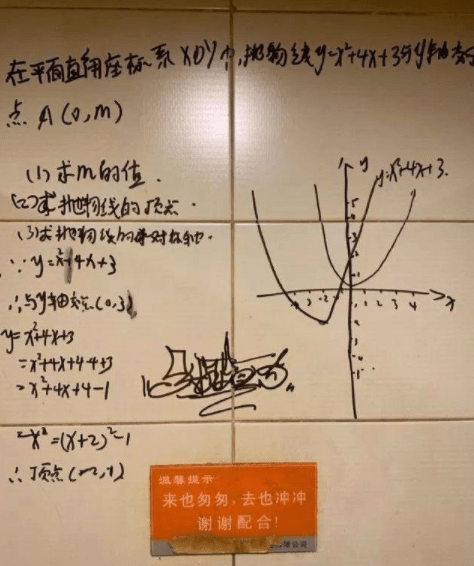 在平面直角坐标系XOY中,抛物线y=x²+4x+3与y轴交于
点A(0,m)
(1)求m的值.
(2)求抛物线的顶点.
(3)求抛物线的对称轴.
∵y=x²+4x+3
∴与y轴交点(0,3)
y=x²+4x+3
=x²+4x+4-4+3
=x²+4x+4-1
=(x+2)²-1
∴顶点(-2,-1)
y=x²+4x+3.
y
x
温馨提示
来也匆匆,去也冲冲
谢谢配合!